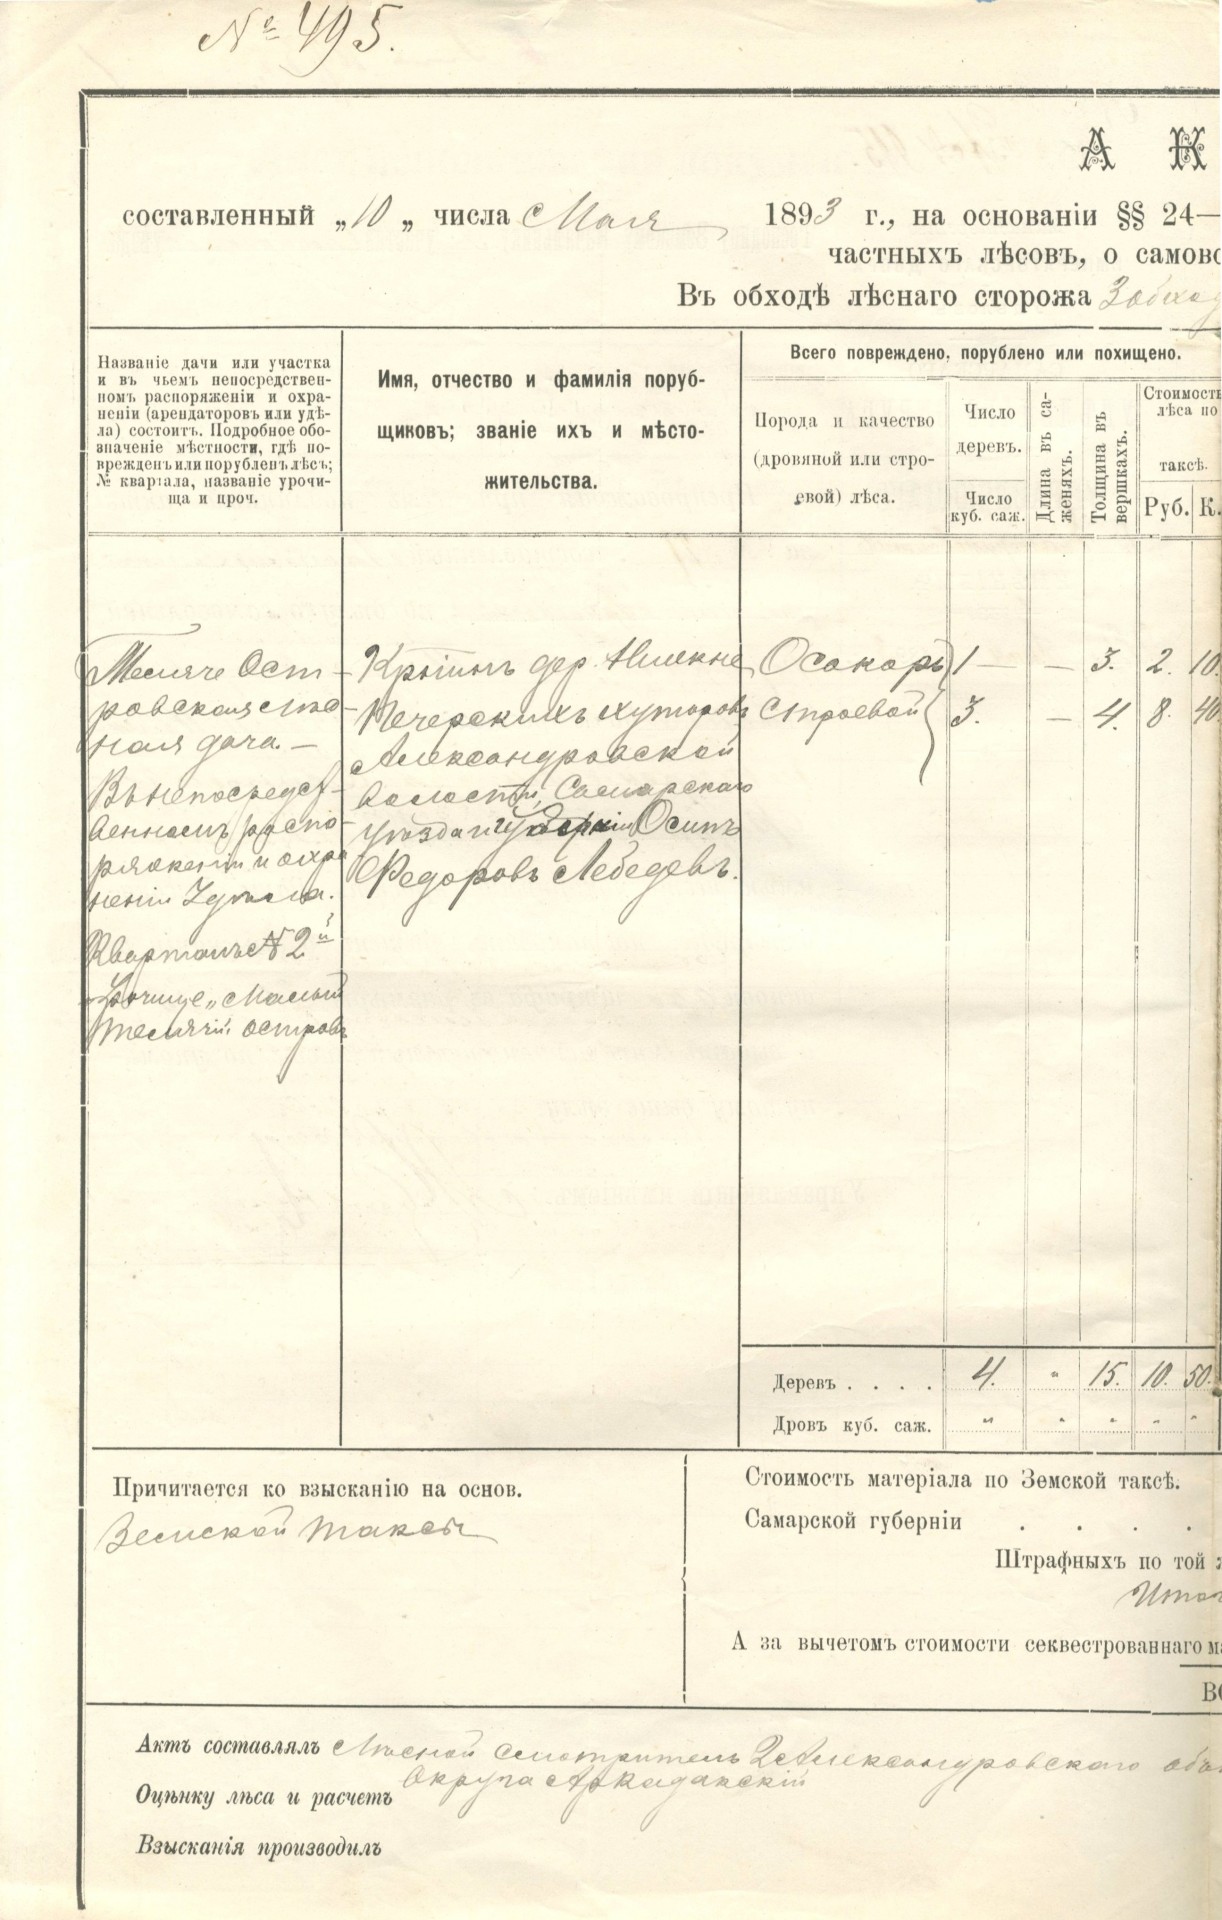 № 495.
А К
составленный „10„ числа Мая 1893 г., на основаніи §§ 24—
частныхъ лѣсовъ, о самово
Въ обходѣ лѣснаго сторожа
Названіе дачи или участка
и въ чьемъ непосредствен-
номъ распоряженіи и охра-
неніи (арендаторовъ или удѣ-
ла) состоитъ. Подробное обо-
значеніе мѣстности, гдѣ по-
врежденъ или порубленъ лѣсъ;
№ квартала, названіе урочи-
ща и проч.
Имя, отчество и фамилія поруб-
щиковъ; званіе ихъ и мѣсто-
жительства.
Всего повреждено, порублено или похищено.
Порода и качество
(дровяной или стро-
евой) лѣса.
Число
деревъ.
Число
куб. саж.
Длина въ са-
женяхъ.
Толщина въ
вершкахъ.
Стоимость
лѣса по
таксѣ.
Руб. К.
Телячье Ост-
ровская лѣс-
ная дача.—
Въ непосредст-
венномъ распо-
ряженіи и охра
неніи Удѣла.
Кварталъ № 2й
Урочище „Малый
Телячій островъ
дер.
Печерскихъ хуторовъ
Александровской
волости, Самарскаго
уѣзда и губерніи Осипъ
Федоровъ Лебедевъ.
Осокорь 1 — — 3. 2. 10.
Строевой 3. — 4. 8. 40
Деревъ . . . . 4. „ 15. 10. 50.
Дровъ куб. саж. „ „ „ „ „
Причитается ко взысканію на основ.
Земской таксы
Стоимость матеріала по Земской таксѣ.
Самарской губерніи . . . .
Штрафныхъ по той ж
Итог
А за вычетомъ стоимости секвестрованнаго ма
ВС
Актъ составлялъ Лѣсной смотритель 2 Александровскаго объ
Округа Аркадакскій
Оцѣнку лѣса и расчетъ
Взысканія производилъ